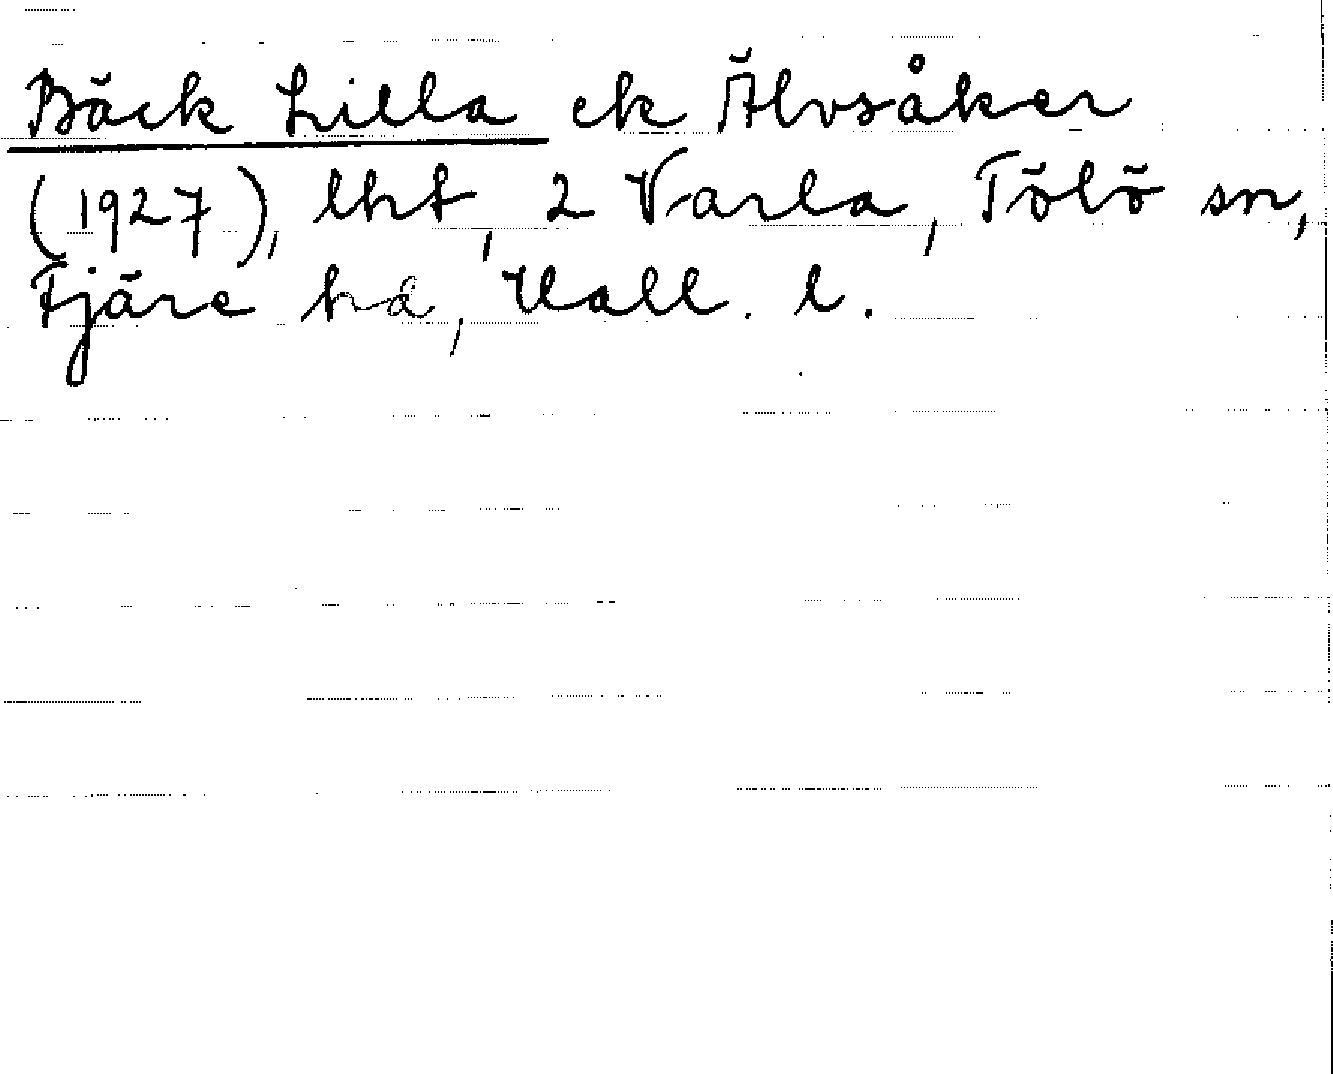 Bäck Lilla ek Älvsåker
(1927), lht, 2 Varla, Tölö sn,
Fjäre hd, Hall. l.